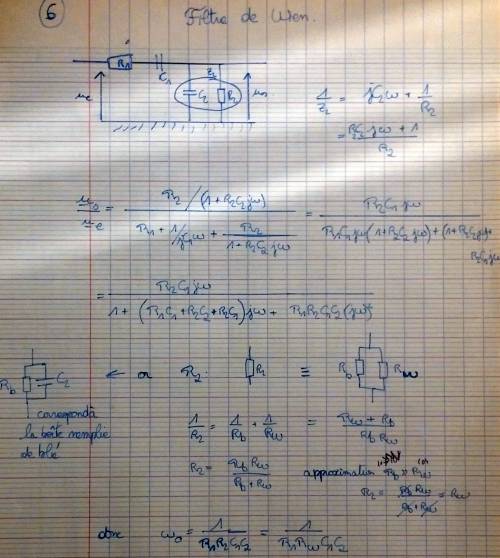 6
Filtre de Wien.
R1 C1 Z2
ue C2 R2 us
1/Z2 = jC2ω + 1/R2
= (R2C2jω + 1)/R2
us/ue = (R2/(1+R2C2jω))/(R1 + 1/jC1ω + R2/(1+R2C2jω)) = R2C1jω/(R1C1jω(1+R2C2jω)+(1+R2C2jω)+R2C1jω)
= R2C1jω/(1+(R1C1+R2C2+R2C1)jω + R1R2C1C2(jω)²)
Rb C2 ← or R2: R2 ≡ Rb Rw
correspond à
la boîte remplie
de blé
1/R2 = 1/Rb + 1/Rw = (Rw + Rb)/(Rb Rw)
R2 = Rb Rw/(Rb + Rw) approximation Rb » Rw
R2 = Rb Rw/(Rb + Rw) = Rw
donc ω0 = 1/(R1R2C1C2) = 1/(R1RwC1C2)